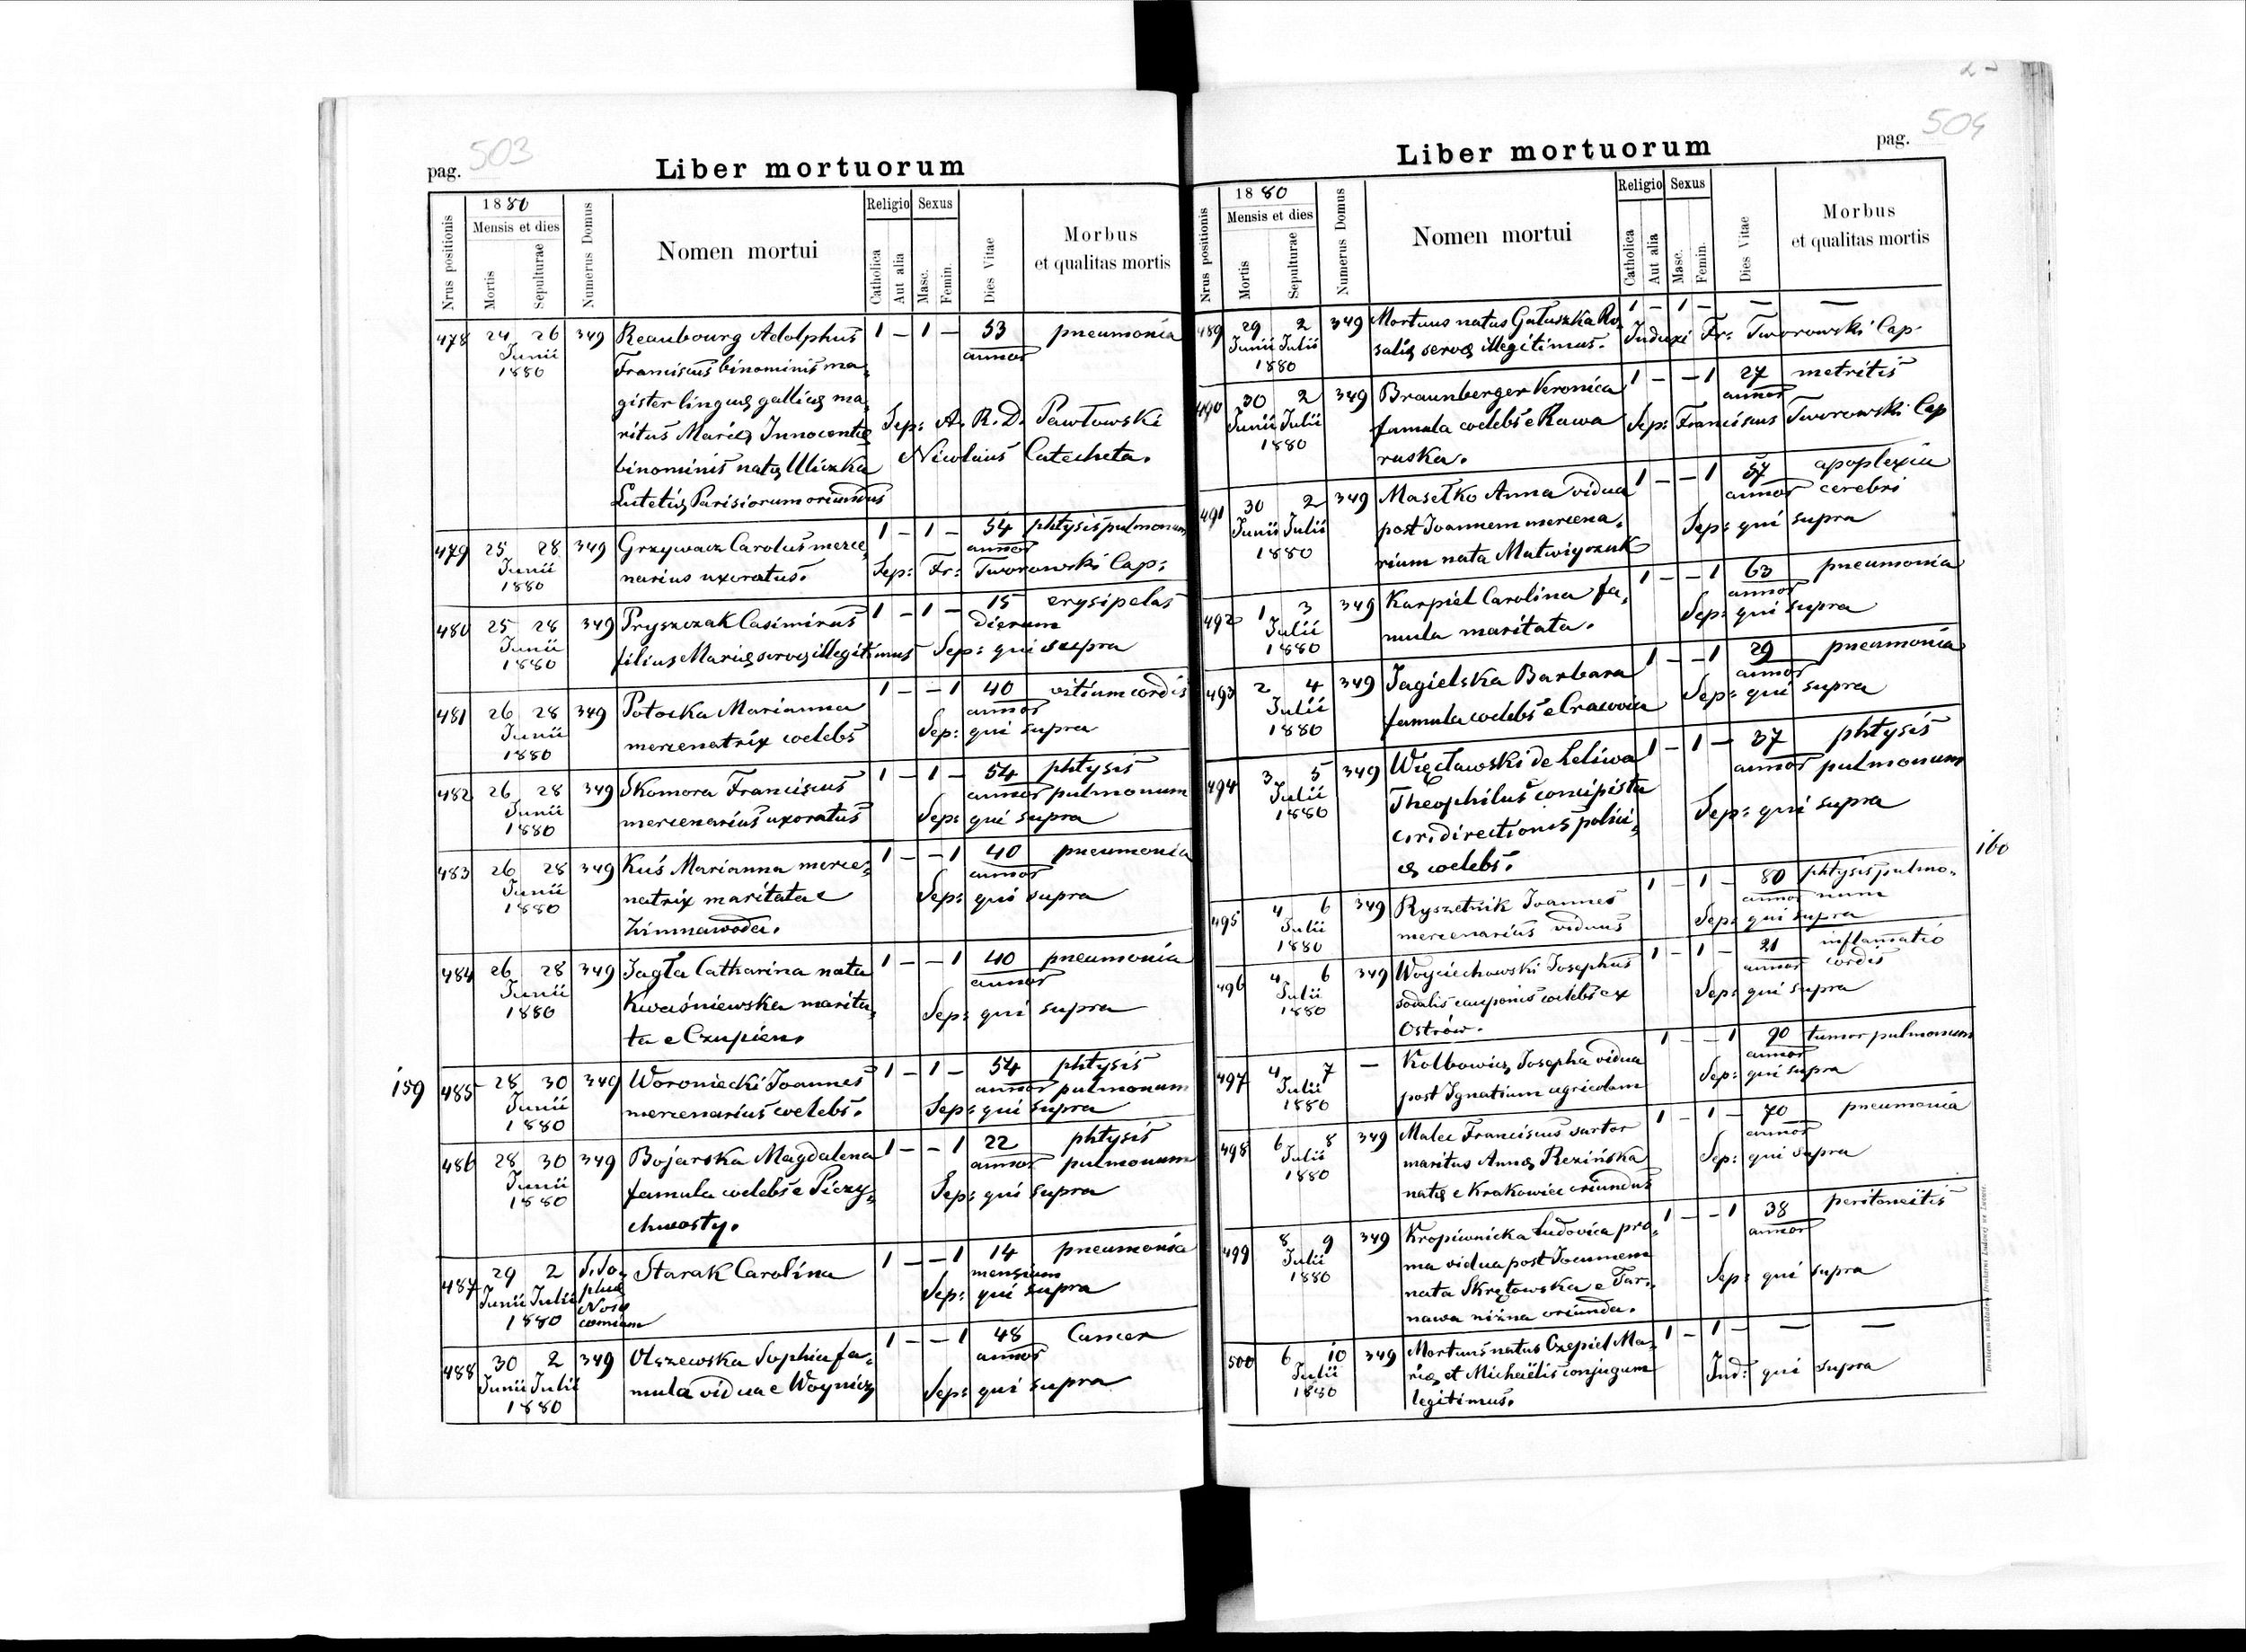 pag. 503
Liber mortuorum
Nrus positionis
1880
Mensis et dies
Mortis
Sepulturae
Numerus Domus
Nomen mortui
Religio
Catholica
Aut alia
Sexus
Masc.
Femin.
Dies Vitae
Morbus
et qualitas mortis
478 24 26 349 Reaubourg Adolphus 1 – 1 – 53 pneumonia
Junii Franciscus binominis ma, annor
1880
gister linguæ gallicæ ma,
ritus Mariæ Innocentiæ Sep: A. R. D. Pawłowski
binominis natæ Uliczka Nicolaus Catecheta.
Lutetiæ Parisiorum oriundus
479 25 28 349 Grzywacz Carolus merce, 1 – 1 – 54 phtysis pulmonum
Junii annor
1880 narius uxoratus. Sep: Fr: Tworowski Cap:
480 25 28 349 Pryszczak Casimirus 1 – 1 – 15 erysipelas
Junii dierum
1880 filius Mariæ servæ illegitimus Sep: qui supra
481 26 28 349 Potocka Marianna 1 – – 1 40 vitium cordis
Junii annor
1880 mercenatrix coelebs Sep: qui supra
482 26 28 349 Skomora Franciscus 1 – 1 – 54 phtysis
Junii annor pulmonum
1880 mercenarius uxoratus Sep: qui supra
483 26 28 349 Kuś Marianna merce, 1 – – 1 40 pneumonia
Junii annor
1880 natrix maritata e Sep: qui supra
Zimnawoda.
484 26 28 349 Jagła Catharina nata 1 – – 1 40 pneumonia
Junii annor
1880 Kwaśniewska marita, Sep: qui supra
ta e Czupien.
159 485 28 30 349 Woroniecki Joannes 1 – 1 – 54 phtysis
Junii annor pulmonum
1880 mercenarius coelebs. Sep: qui supra
486 28 30 349 Bojarska Magdalena 1 – – 1 22 phtysis
Junii annor pulmonum
1880 famula coelebs e Piczy, Sep: qui supra
chwosty.
487 29 2 S. So, Starak Carolina 1 – – 1 14 pneumonia
Junii Julii phiæ mensium
1880 Noso Sep: qui supra
comium
488 30 2 349 Olszewska Sophia fa, 1 – – 1 48 Cancer
Junii Julii annor
1880 mula vidua e Woynicz Sep: qui supra
pag. 504
Liber mortuorum
Nrus positionis
1880
Mensis et dies
Mortis
Sepulturae
Numerus Domus
Nomen mortui
Religio
Catholica
Aut alia
Sexus
Masc.
Femin.
Dies Vitae
Morbus
et qualitas mortis
489 29 2 349 Mortuus natus Gałuszka Ro, 1 – 1 – — —
Junii Julii
1880 saliæ servæ illegitimus. Induxi Fr: Tworowski Cap.
490 30 2 349 Braunberger Veronica 1 – – 1 27 metritis
Junii Julii annor
1880 famula coelebs e Rawa Sep: Franciscus Tworowski Cap
ruska.
491 30 2 349 Masełko Anna vidua 1 – – 1 57 apoplexia
Junii Julii annor cerebri
1880 post Joannem mercena, Sep: qui supra
rium nata Matwiyczuk
492 1 3 349 Karpiel Carolina fa, 1 – – 1 63 pneumonia
Julii annor
1880 mula maritata. Sep: qui supra
493 2 4 349 Jagielska Barbara 1 – – 1 29 pneumonia
Julii annor
1880 famula coelebs e Cracovia Sep: qui supra
494 3 5 349 Więcławski de Leliwa 1 – 1 – 37 phtysis
Julii annor pulmonum
1880 Theophilus concipista Sep: qui supra
c. r. directionis polici,
æ coelebs.
160
495 4 6 349 Ryszetnik Joannes 1 – 1 – 80 phtysis pulmo,
Julii annor num
1880 mercenarius viduus Sep: qui supra
496 4 6 349 Woyciechowski Josephus 1 – 1 – 21 inflamatio
Julii annor cordis
1880 sodalis cauponis coelebs ex Sep: qui supra
Ostrów.
497 4 7 — Kolbowicz Josepha vidua 1 – – 1 90 tumor pulmonum
Julii annor
1880 post Ignatium agricolam Sep: qui supra
498 6 8 349 Malec Franciscus sartor 1 – 1 – 70 pneumonia
Julii annor
1880 maritus Annæ Rezińska Sep: qui supra
natæ e Krakowiec oriundus
499 8 9 349 Kropiwnicka Ludovica pro, 1 – – 1 38 peritoneitis
Julii annor
1880 ma vidua post Joannem
nata Skrętowska e Tar, Sep: qui supra
nawa niżna oriunda.
500 6 10 349 Mortuus natus Czepiel Ma, 1 – 1 – — —
Julii
1880 riæ et Michaëlis conjugum Ind: qui supra
legitimus.